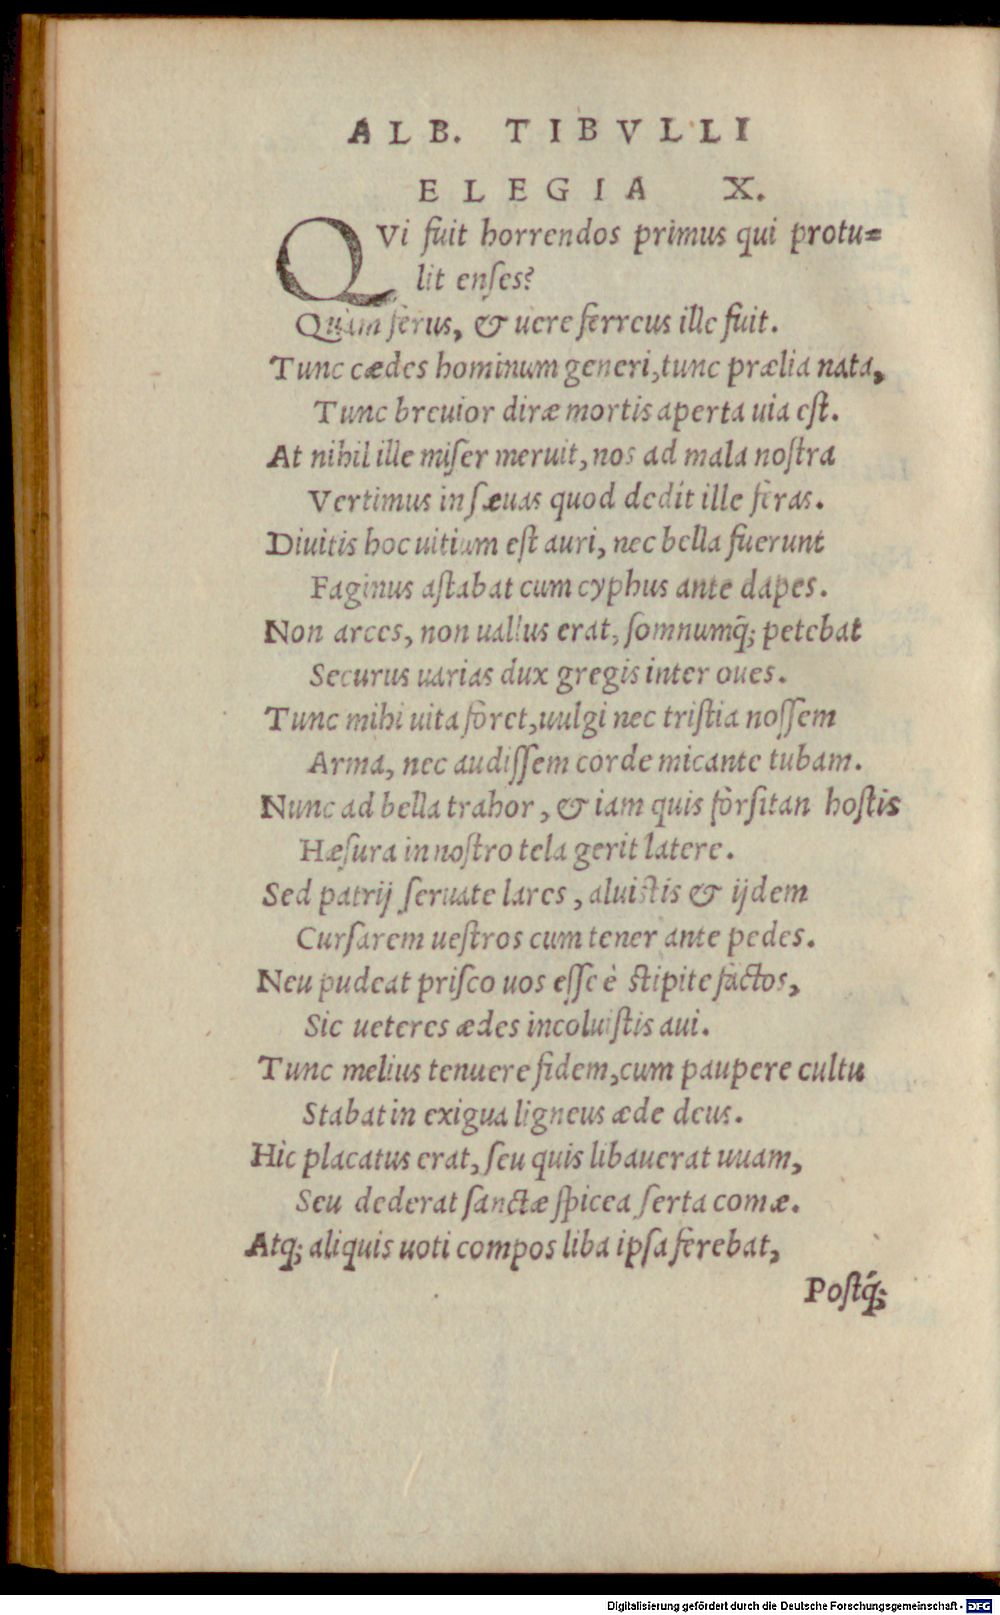 ALB. TIBVLLI
ELEGIA X.
QVi fuit horrendos primus qui protu=
lit enses?
Quàm ferus, & uere ferreus ille fuit.
Tunc cædes hominum generi, tunc prælia nata,
Tunc breuior diræ mortis aperta uia est.
At nihil ille miser meruit, nos ad mala nostra
Vertimus in sæuas quod dedit ille feras.
Diuitis hoc uitium est auri, nec bella fuerunt
Faginus astabat cum cyphus ante dapes.
Non arces, non uallus erat, somnumq̃; petebat
Securus uarias dux gregis inter oues.
Tunc mihi uita foret, uulgi nec tristia nossem
Arma, nec audissem corde micante tubam.
Nunc ad bella trahor, & iam quis forsitan hostis
Hæsura in nostro tela gerit latere.
Sed patrij seruate lares, aluistis & ijdem
Cursarem uestros cum tener ante pedes.
Neu pudeat prisco uos esse è stipite factos,
Sic ueteres ædes incoluistis aui.
Tunc melius tenuere fidem, cum paupere cultu
Stabat in exigua ligneus æde deus.
Hic placatus erat, seu quis libauerat uuam,
Seu dederat sanctæ spicea serta comæ.
Atq; aliquis uoti compos liba ipsa ferebat,
Postq́;
Digitalisierung gefördert durch die Deutsche Forschungsgemeinschaft - DFG